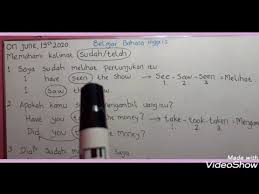 On June, 13th 2020
Belajar Bahasa Inggris
Memahami kalimat sudah/telah
1 Saya sudah melihat pertunjukan itu
I have seen the show → See - Saw - Seen = Melihat
1 2 3
I saw the show
2 Apakah kamu mengambil uang itu?
Have you the money? → take - took - taken = Mengambil
1 2 3
Did you the money?
3 Dia saya
Made with
VideoShow